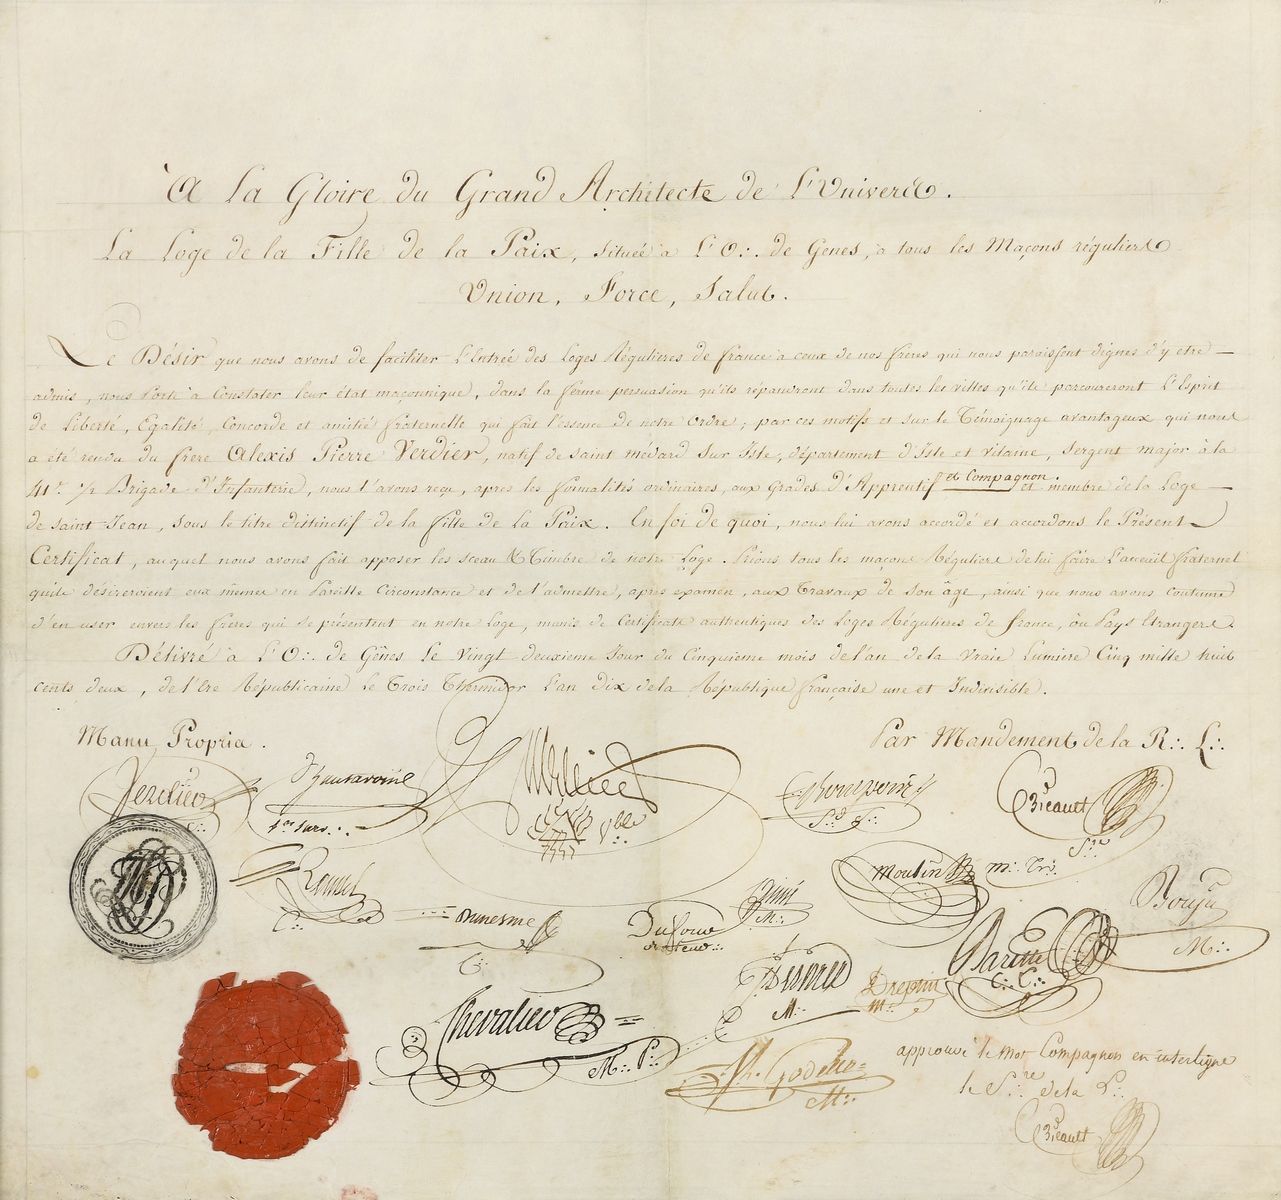 À La Gloire du Grand Architecte de L'Univers.
La Loge de la Fille de la Paix, située à L'O∴ de Gênes, à tous les Maçons réguliers
Union, Force, Salut.
Le Désir que nous avons de faciliter L'Entrée des Loges Régulieres de france à ceux de nos frères qui nous paroissent dignes d'y etre
admis, nous Porte à Constater leur état maçonnique, dans la ferme persuasion qu'ils répandront dans toutes les villes qu'ils parcoureront L'Esprit
de Liberté, Egalité, Concorde et amitié fraternelle qui fait l'essence de notre Ordre; par ces motifs et sur le Témoignage avantageux qui nous
a été rendu du frère Alexis Pierre Verdier, natif de Saint médard Sur Isle, département d'Isle et vilaine, Sergent major à la
41e 1/2 Brigade d'Infanterie, nous l'avons reçu, après les formalités ordinaires, aux Grades d'Apprentif et Compagnon. et membre de la Loge
de Saint Jean, Sous le titre distinctif de la fille de La Paix. En foi de quoi, nous lui avons accordé et accordons le Présent
Certificat, auquel nous avons fait apposer les sceau & Timbre de notre Loge. Prions tous les maçons Réguliers de lui faire L'acceuil fraternel
qu'ils désireroient eux mêmes en Pareille Circonstance et de l'admettre, après examen, aux Travaux de Son âge, ainsi que nous avons coutume
d'en user envers les frères qui Se présentent en notre Loge, munis de Certificats authentiques des Loges Régulieres de france, ou Pays Etrangers.
Délivré à L'O∴ de Gênes le Vingt deuxieme Jour du Cinquieme mois de l'an de la Vraie Lumiere Cinq mille huit
cents deux, de l'Ere Républicaine Le Trois Thermidor L'an Dix de la République française une et Indivisible.
Manu Propria.
Par Mandement de la R∴ L∴
Verdier
1er Surv∴
V∴ble
S.d S∴
Bicault
S∴re
Moulin m∴ Tr∴
Bouju
M∴
C∴
Dufour
orateur∴
M∴
Barette
C∴ C∴
M∴
M∴
Chevalier
M∴ P∴
M∴
approuvé le mot Compagnon en interligne
le S∴re de la L∴
Bicault